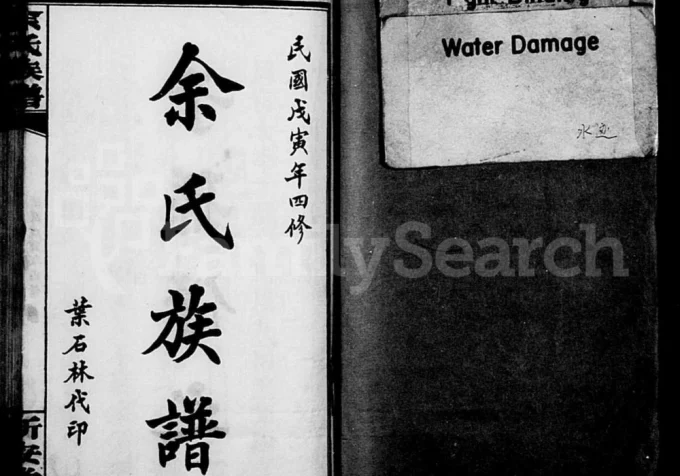 民國戊寅年四修
余氏族譜
葉石林代印
余氏族譜
Water Damage
水
FamilySearch